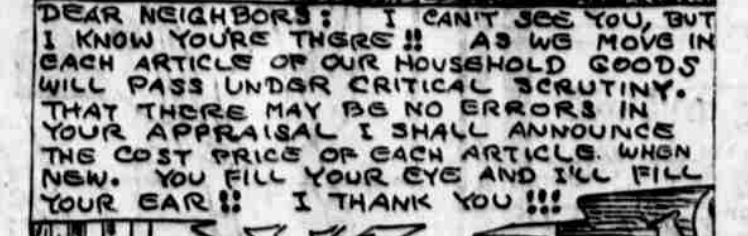 DEAR NEIGHBORS: I CAN'T SEE YOU, BUT
I KNOW YOU'RE THERE!! AS WE MOVE IN
EACH ARTICLE OF OUR HOUSEHOLD GOODS
WILL PASS UNDER CRITICAL SCRUTINY.
THAT THERE MAY BE NO ERRORS IN
YOUR APPRAISAL I SHALL ANNOUNCE
THE COST PRICE OF EACH ARTICLE. WHEN
NEW. YOU FILL YOUR EYE AND I'LL FILL
YOUR EAR!! I THANK YOU!!!